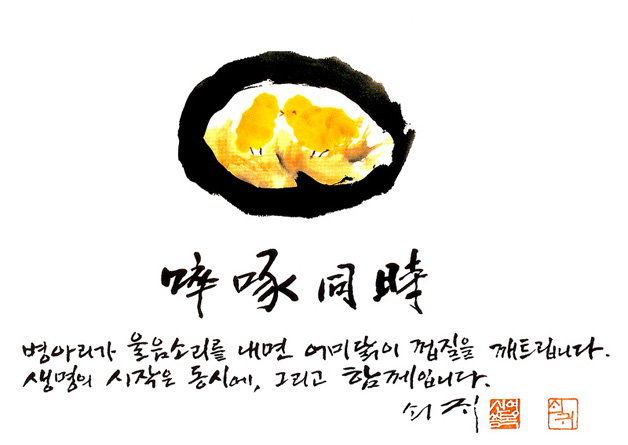 啐啄同時
병아리가 울음소리를 내면 어미닭이 껍질을 깨트립니다.
생명의 시작은 동시에, 그리고 함께입니다.